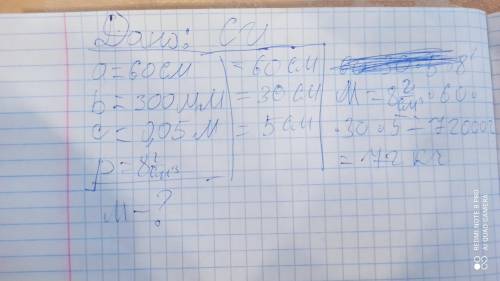 Дано: СИ
a = 60 см = 60 см
b = 300 мм = 30 см
c = 0,05 м = 5 см
ρ = 8 г/см³
м - ?
м = 8 г/см³ · 60 ·
· 30 · 5 = 72000г
= 72 кг
REDMI NOTE 8 PRO
AI QUAD CAMERA